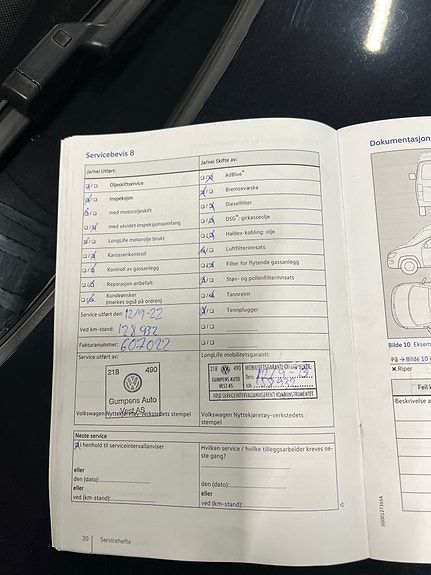 Servicebevis 8
Ja/nei Utført:
Oljeskiftservice
Inspeksjon
med motoroljeskift
med utvidet inspeksjonsomfang
LongLife motorolje brukt
Karosserikontroll
Kontroll av gassanlegg
Reparasjon anbefalt
Kundeønsker
(merkes også på ordren)
Service utført den: 12/9-22
Ved km-stand: 128 932
Fakturanummer: 607022
Ja/nei Skifte av:
AdBlue®
Bremsevæske
Dieselfilter
DSG®: girkasseolje
Haldex-kobling: olje
Luftfilterinnsats
Filter for flytende gassanlegg
Støv- og pollenfilterinnsats
Tannreim
Tennplugger
Service utført av:
218 490
Gumpens Auto
Vest AS
Volkswagen Nyttekjøretøy-verkstedets
stempel
LongLife mobilitetsgaranti:
218 490
GUMPENS AUTO
VEST AS
Volkswagen Nyttekjøretøy-verkstedets
stempel
Neste service
I henhold til serviceintervallanviser
eller
den (dato):
eller
ved (km-stand):
Hvilken service / hvilke tilleggsarbeider kreves ne-
ste gang?
eller
den (dato):
eller
ved (km-stand):
20 Servicehefte
Dokumentasjon
Bilde 10
På → Bilde 10
× Riper
Feil
Beskrivelse a